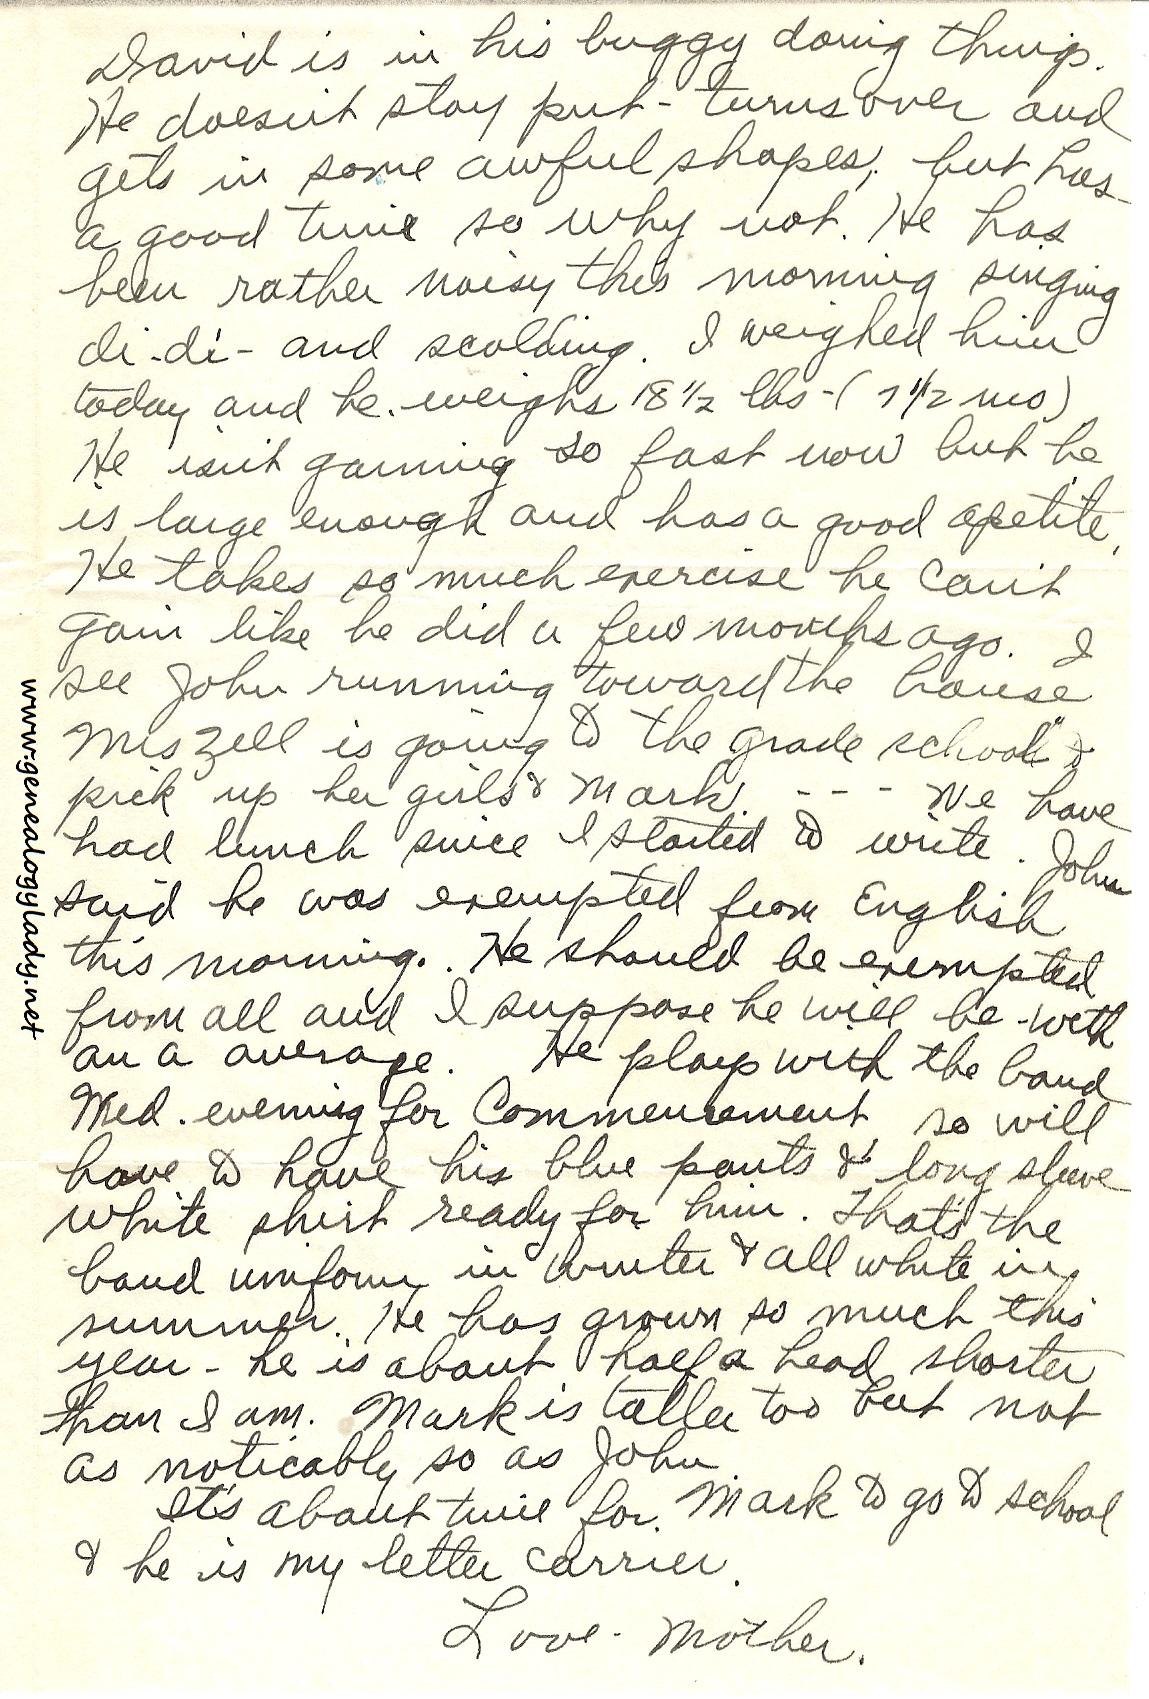 David is in his buggy doing things.
He doesn't stay put - turns over and
gets in some awful shapes, but has
a good time so why not. He has
been rather noisy this morning singing
di-di- and scolding. I weighed him
today and he weighs 18 1/2 lbs - (7 1/2 mo)
He isn't gaining so fast now but he
is large enough and has a good apetite.
He takes so much exercise he can't
gain like he did a few months ago. I
see John running toward the house
Mrs Zell is going to the grade school &
pick up her girls & Mark. - - - We have
had lunch since I started to write. John
said he was exempted from English
this morning. He should be exempted
from all and I suppose he will be - with
an a average. He plays with the band
Wed. evening for Commencement so will
have to have his blue pants & long sleeve
white shirt ready for him. That's the
band uniform in winter & all white in
summer. He has grown so much this
year - he is about half a head shorter
than I am. Mark is taller too but not
as noticably so as John.
It's about time for Mark to go to school
& he is my letter carrier.
Love - Mother.
www.genealogylady.net